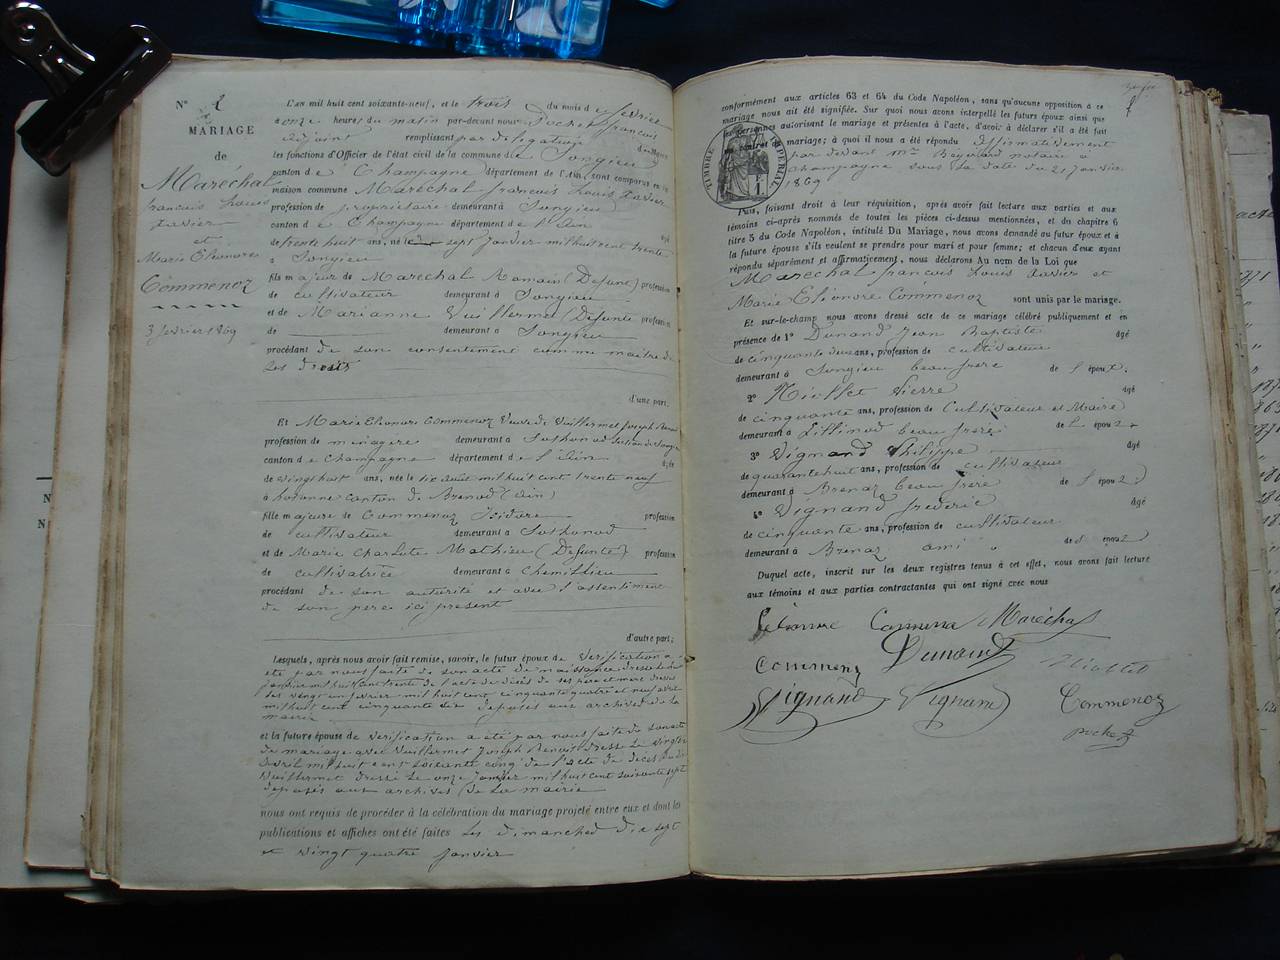 N° 2
MARIAGE
de
Maréchal
francois Louis
Xavier
et
Marie Eléonore
Commenoz
3 fevrier 1869
L'an mil huit cent soixante-neuf, et le trois du mois de fevrier
à onze heures du matin par-devant nous Pochet francois
adjoint remplissant par délégation
les fonctions d'Officier de l'état civil de la commune de Songieu
canton de Champagne département de l'Ain, sont comparus en la
maison commune Maréchal francois Louis Xavier
profession de propriétaire demeurant à Songieu
canton de Champagne département de l'Ain âgé
de trente huit ans, né le sept janvier mil huit cent trente
à Songieu
fils majeur de Maréchal Romain (Defunt) profession
de cultivateur demeurant à Songieu
et de Marianne Vuillermet (Defunte profession
de demeurant à Songieu
procédant de son consentement comme maitre de
ses droits
d'une part.
Et Marie Eléonore Commenoz Veuve de Vuillermet Joseph Benoit
profession de ménagere demeurant à Sothonod section de Songieu
canton de Champagne département de l'Ain âgée
de vingt huit ans, née le dix aout mil huit cent trente neuf
à hotonne canton de Brenod (Ain)
fille majeure de Commenoz Isidore profession
de cultivateur demeurant à Sothonod
et de Marie Charlote Mathieu (Defunte) profession
de cultivatrice demeurant à Chemillieu
procédant de son autorité et avec l'assentiment
de son pere ici present
d'autre part;
Lesquels, après nous avoir fait remise, savoir, le futur époux de verification a
été par nous faite de son acte de naissance dressé le huit
janvier mil huit cent trente de l'acte de décès de ses pere et mere dressés
les vingt un fevrier mil huit cent cinquante quatre et neuf avril
mil huit cent cinquante dix deposés aux archives de la
mairie
et la future épouse de verification a été par nous faite de son acte
de mariage avec Vuillermet Joseph Benoit dressé le vingt
avril mil huit cent soixante cinq de l'acte de décès dudit
Vuillermet dressé le onze janvier mil huit cent soixante sept
deposés aux archives de la mairie
nous ont requis de procéder à la célébration du mariage projeté entre eux et dont les
publications et affiches ont été faites les dimanches dix sept
et vingt quatre janvier
conformément aux articles 63 et 64 du Code Napoléon, sans qu'aucune opposition à ce
mariage nous ait été signifiée. Sur quoi nous avons interpellé les futurs époux ainsi que
les personnes autorisant le mariage et présentes à l'acte, d'avoir à déclarer s'il a été fait
un contrat de mariage; à quoi il nous a été répondu affirmativement
par devant Me notaire à
Champagne sous la date du 21 janvier
1869
TIMBRE IMPERIAL
Puis, faisant droit à leur réquisition, après avoir fait lecture aux parties et aux
témoins ci-après nommés de toutes les pièces ci-dessus mentionnées, et du chapitre 6
titre 5 du Code Napoléon, intitulé Du Mariage, nous avons demandé au futur époux et à
la future épouse s'ils veulent se prendre pour mari et pour femme; et chacun d'eux ayant
répondu séparément et affirmativement, nous déclarons Au nom de la Loi que
Marechal francois Louis Xavier et
Marie Eléonore Commenoz sont unis par le mariage.
Et sur-le-champ nous avons dressé acte de ce mariage célébré publiquement et en
présence de 1° Dunand Jean Baptiste âgé
de cinquante deux ans, profession de cultivateur
demeurant à Songieu beau frere de l'époux.
2° Niollet Pierre âgé
de cinquante ans, profession de Cultivateur et Maire
demeurant à Lillinod beau frere de l'époux
3° Vignand Philippe âgé
de quarante huit ans, profession de cultivateur
demeurant à Brenaz beau frere de l'époux
4° Vignand frederic âgé
de cinquante ans, profession de cultivateur
demeurant à Brenaz ami de l'époux
Duquel acte, inscrit sur les deux registres tenus à cet effet, nous avons fait lecture
aux témoins et aux parties contractantes qui ont signé avec nous
Maréchal
Commenoz Dunand Niollet
Vignand Vignand Commenoz
Pochet